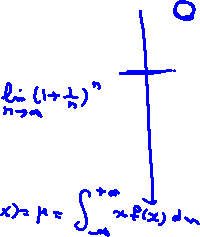 lim (1+1/n)^n
n→∞
x)= μ = ∫_{-∞}^{+∞} x f(x) dx